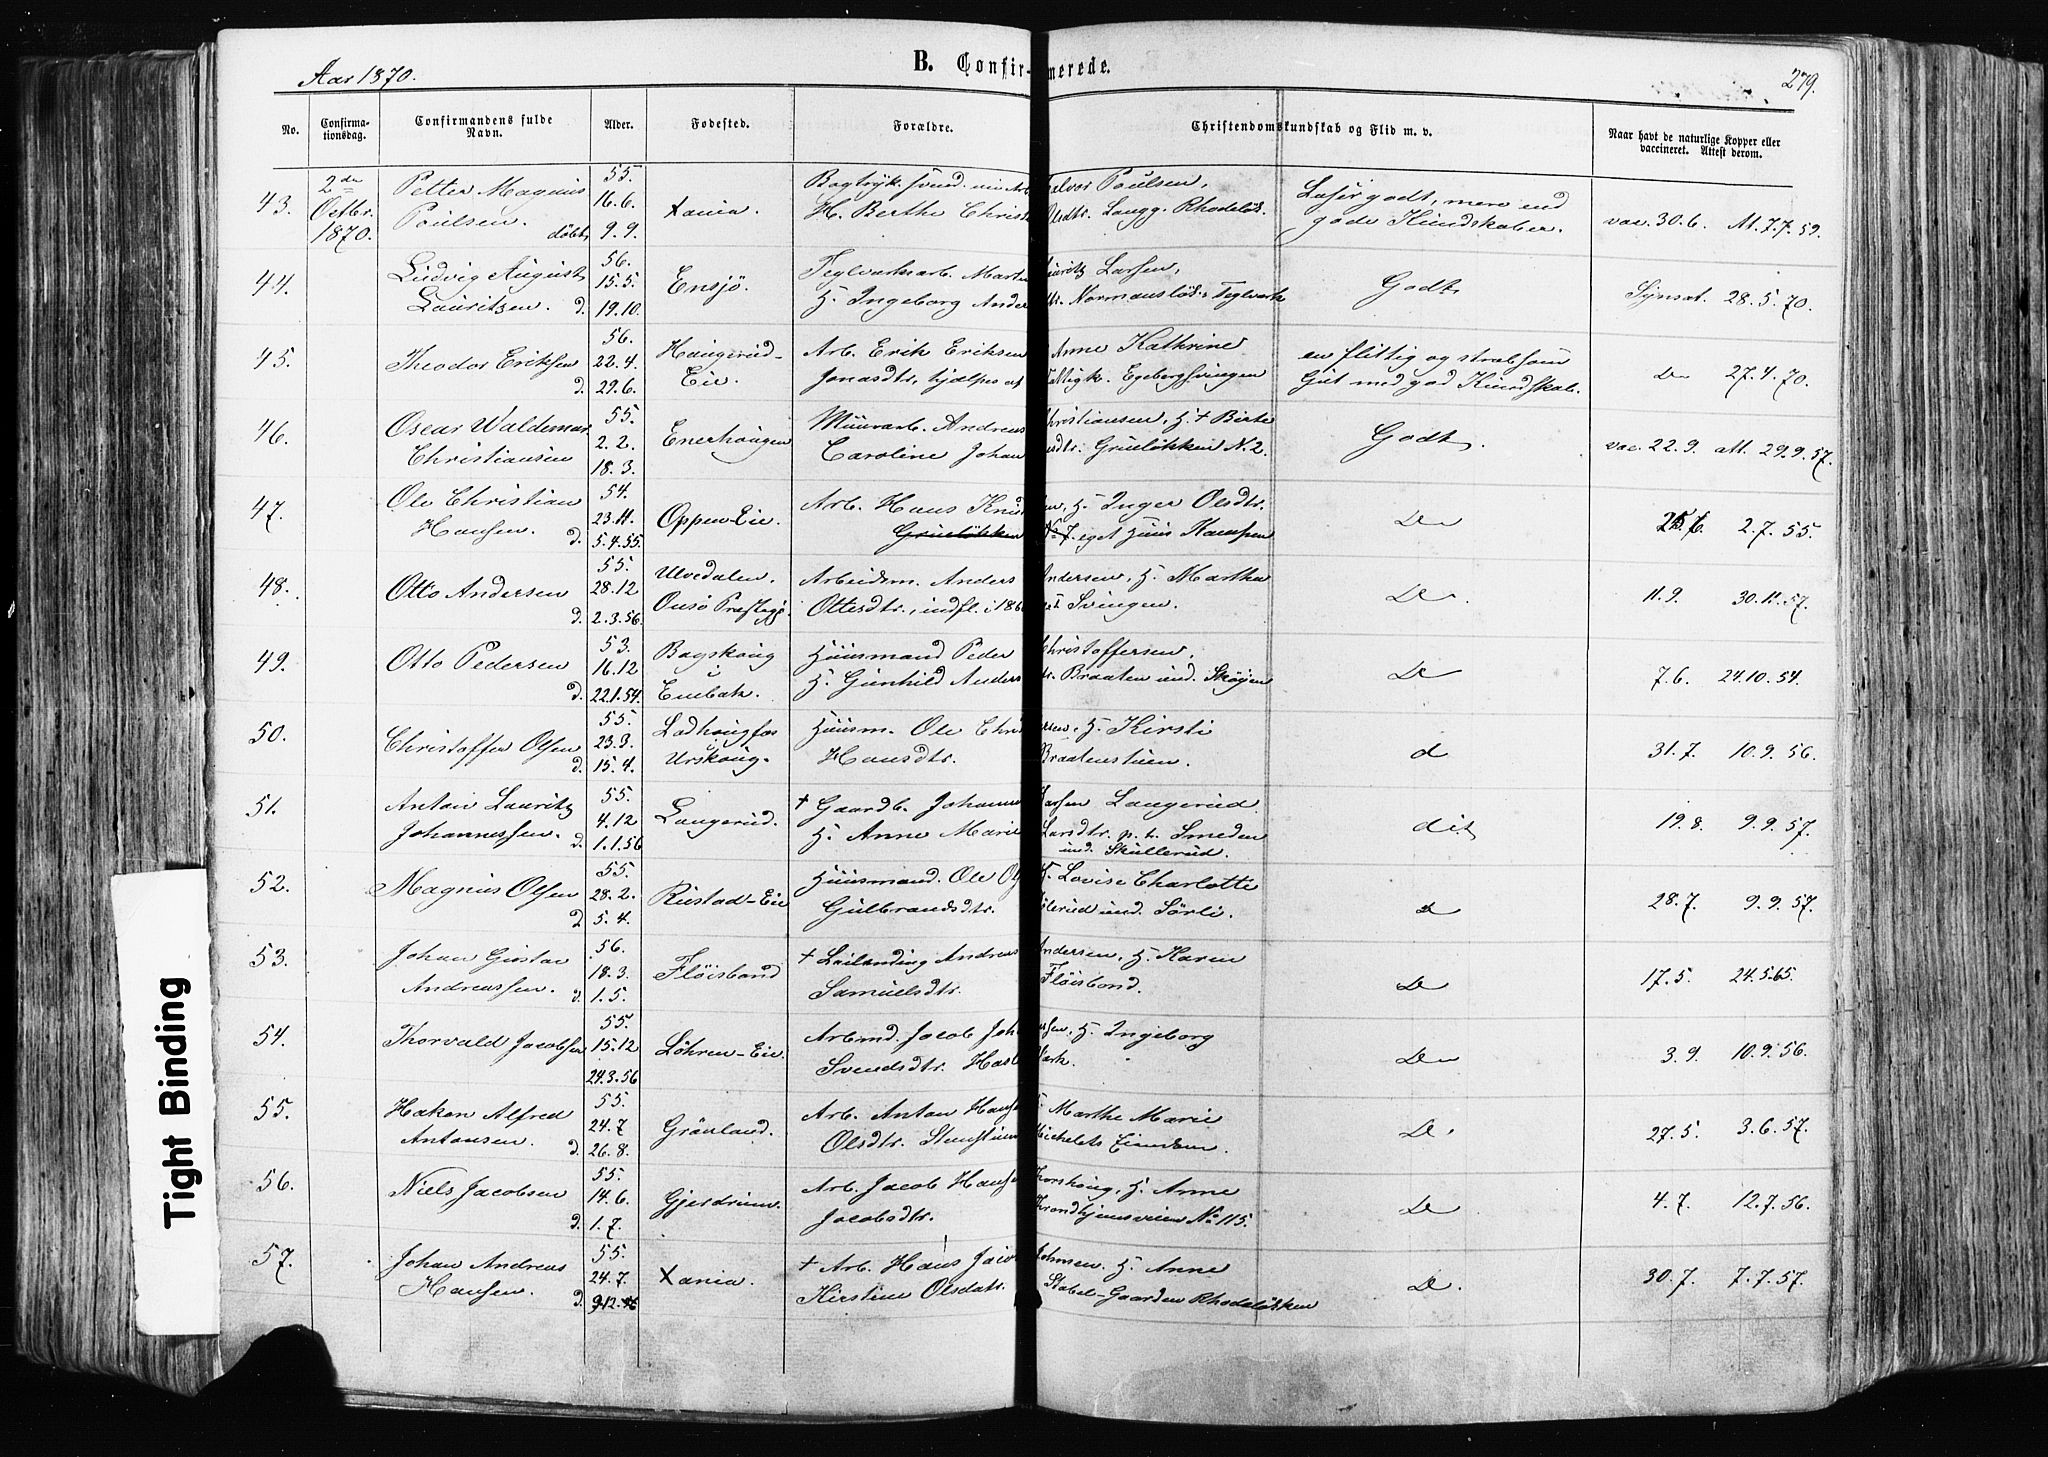 Aar 1870.
B. Confirmerede.
279.
No.
Confirma-
tionsdag.
Confirmandens fulde
Navn.
Alder.
Fødested.
Forældre.
Christendomskundskab og Flid m. v.
Naar havt de naturlige Kopper eller
vaccineret. Attest derom.
43.
2den
Octbr.
1870.
Petter Magnus
Poulsen. døbt
55.
16.6.
9.9.
Xania.
Halvor Poulsen,
H. Berthe Christ Olsdtr. Langg. Rhodeløk.
Læser godt, mere end
gode Kundskaber.
vac. 30.6. At. 7.7.59.
44.
Ludvig August
Lauritsen. d.
56.
15.5.
19.10.
Ensjö.
Teglværksarb. Martin Lauritz Larsen,
H. Ingeborg Anders dtr. Normansløk. Teglværk
Godt
Synsat. 28.5.70.
45.
Theodor Eriksen
d.
56.
22.4.
29.6.
Haugerud-
Eie.
Arb. Erik Eriksen Anne Kathrine
Jonasdtr, hjælpes af Fattigk. Egebergsvingen
en flittig og stræbsom
Gut med god Kundskab.
De 27.4.70.
46.
Oscar Waldemar
Christiansen
55.
2.2.
18.3.
Enerhaugen
Muurarb. Andreas Christiansen, H. + Birte
Caroline Johan esdtr. Grueløkken N. 2.
Godt
vac. 22.9. att. 29.9.57.
47.
Ole Christian
Hansen. d.
54.
23.11.
5.4.55.
Oppen-Eie.
Arb. Hans Knudsen, H. Inger Olsdtr.
Grueløkken No 7. eget Huus Kampen
De
25.6. 2.7.55.
48.
Otto Andersen
d.
55.
28.12
2.3.56.
Ulvedalen.
Onsø Præstegj.
Arbeidsm. Anders Andersen, H. Marthe
Ottersdtr., indfl. i 186 Svingen.
De.
11.9. 30.11.57.
49.
Otto Pedersen
d.
53.
16.12
22.1.54.
Bagskoug
i
Enebak.
Huusmand Peder Christoffersen,
H. Gunhild Anders dtr. Braaten und. Skøyen
De
7.6. 24.10.54.
50.
Christoffer Olsen
d.
55.
23.3.
15.4.
Lødhougfos
i
Urskoug.
Huusm. Ole Christ ersen, H. Kirsti
Hansdtr. Braatenstuen.
d
31.7. 10.9.56.
51.
Anton Lauritz
Johannessen. d.
55.
4.12
1.1.56
Langerud.
+ Gaardb. Johannes Larsen Langerud
H. Anne Marie Larsdtr. p. t. Smeden
und. Skullerud.
dit
19.8. 9.9.57.
52.
Magnus Olsen
d
55.
28.2.
5.4.
Rustad-Eie
Huusmand. Ole Ols H. Lovise Charlotte
Gulbrandsdtr. und. Sörli.
d
28.7. 9.9.57.
53.
Johan Gustav
Andreassen. d.
56.
18.3.
1.5.
Fløisbond
+ Leilending Andreas Andersen, H. Karen
Samuelsdtr. Fløisbond.
De
17.5. 24.5.65.
54.
Thorvald Jacobsen
55.
15.12
24.3.56
Löhren-Eie.
Arbmd. Jacob Joh ersen, H. Ingeborg
Svendsdtr. Hasl Værk.
De
3.9. 10.9.56.
55.
Hakon Alfred
Antonsen. d.
55.
24.7
26.8.
Grönland.
Arb. Anton Hansen Marthe Marie
Olsdtr. Stenstuen Michelets Eiendom.
De.
27.5. 3.6.57.
56.
Niels Jacobsen
d.
55.
14.6.
1.7.
Gjerdrum.
Arb. Jacob Hansen Korshoug, H. Anne
Jacobsdtr. Trondhjemsveien No 115.
De
4.7. 12.7.56.
57.
Johan Andreas
Hansen. d.
55.
24.7.
9.12.56
Xania.
+ Arb. Hans Jacob Johnsen. H. Anne
Kirstine Olsdatr. Stabel-Gaarden Rhodeløkken
De.
30.7. 7.7.57.
Tight Binding